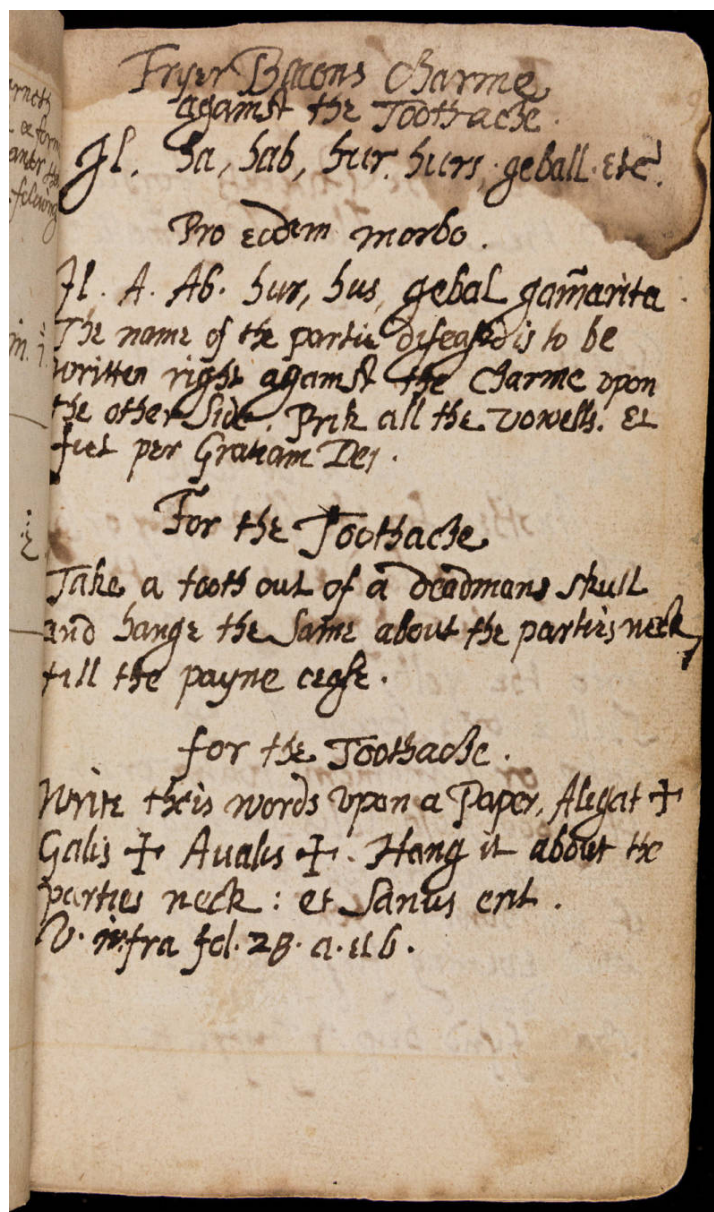 Fryer Bacons Charme
against the Toothache.
Jl. ha, hab, hur. hurs, geball. etc.
Pro eodem morbo.
Jl. A. Ab. hur, hus, gebal gam̃arita.
The name of the partie diseased is to be
written right against the Charme vpon
the other side. Prik all the vowells. Et
fiet per Gratiam Dei.
For the Toothache
Take a tooth out of a deadmans skull
and hange the same about the parties neck,
till the payne cease.
for the Toothache.
Write theis words vpon a Paper, Alegat ✠
Galis ✠ Aualis ✠. Hang it about the
parties neck: et Sanus erit.
V. infra fol. 28. a. et b.